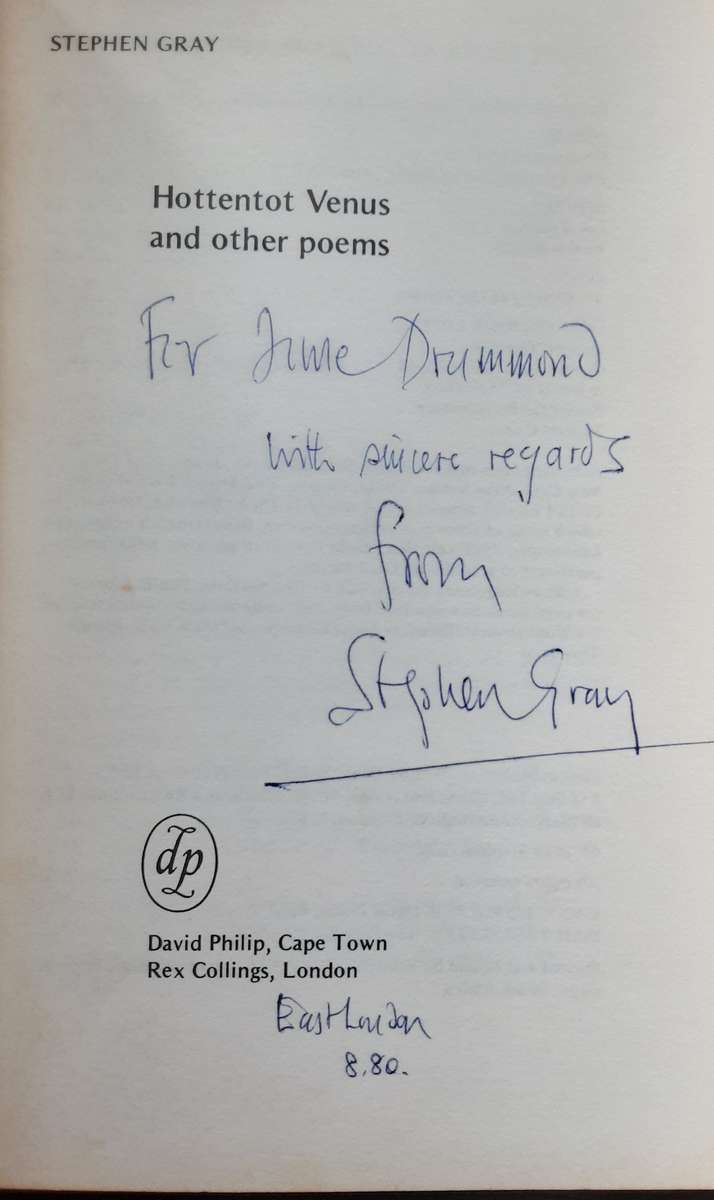 STEPHEN GRAY
Hottentot Venus
and other poems
For June Drummond
with sincere regards
from
Stephen Gray
dp
David Philip, Cape Town
Rex Collings, London
East London
8.80.